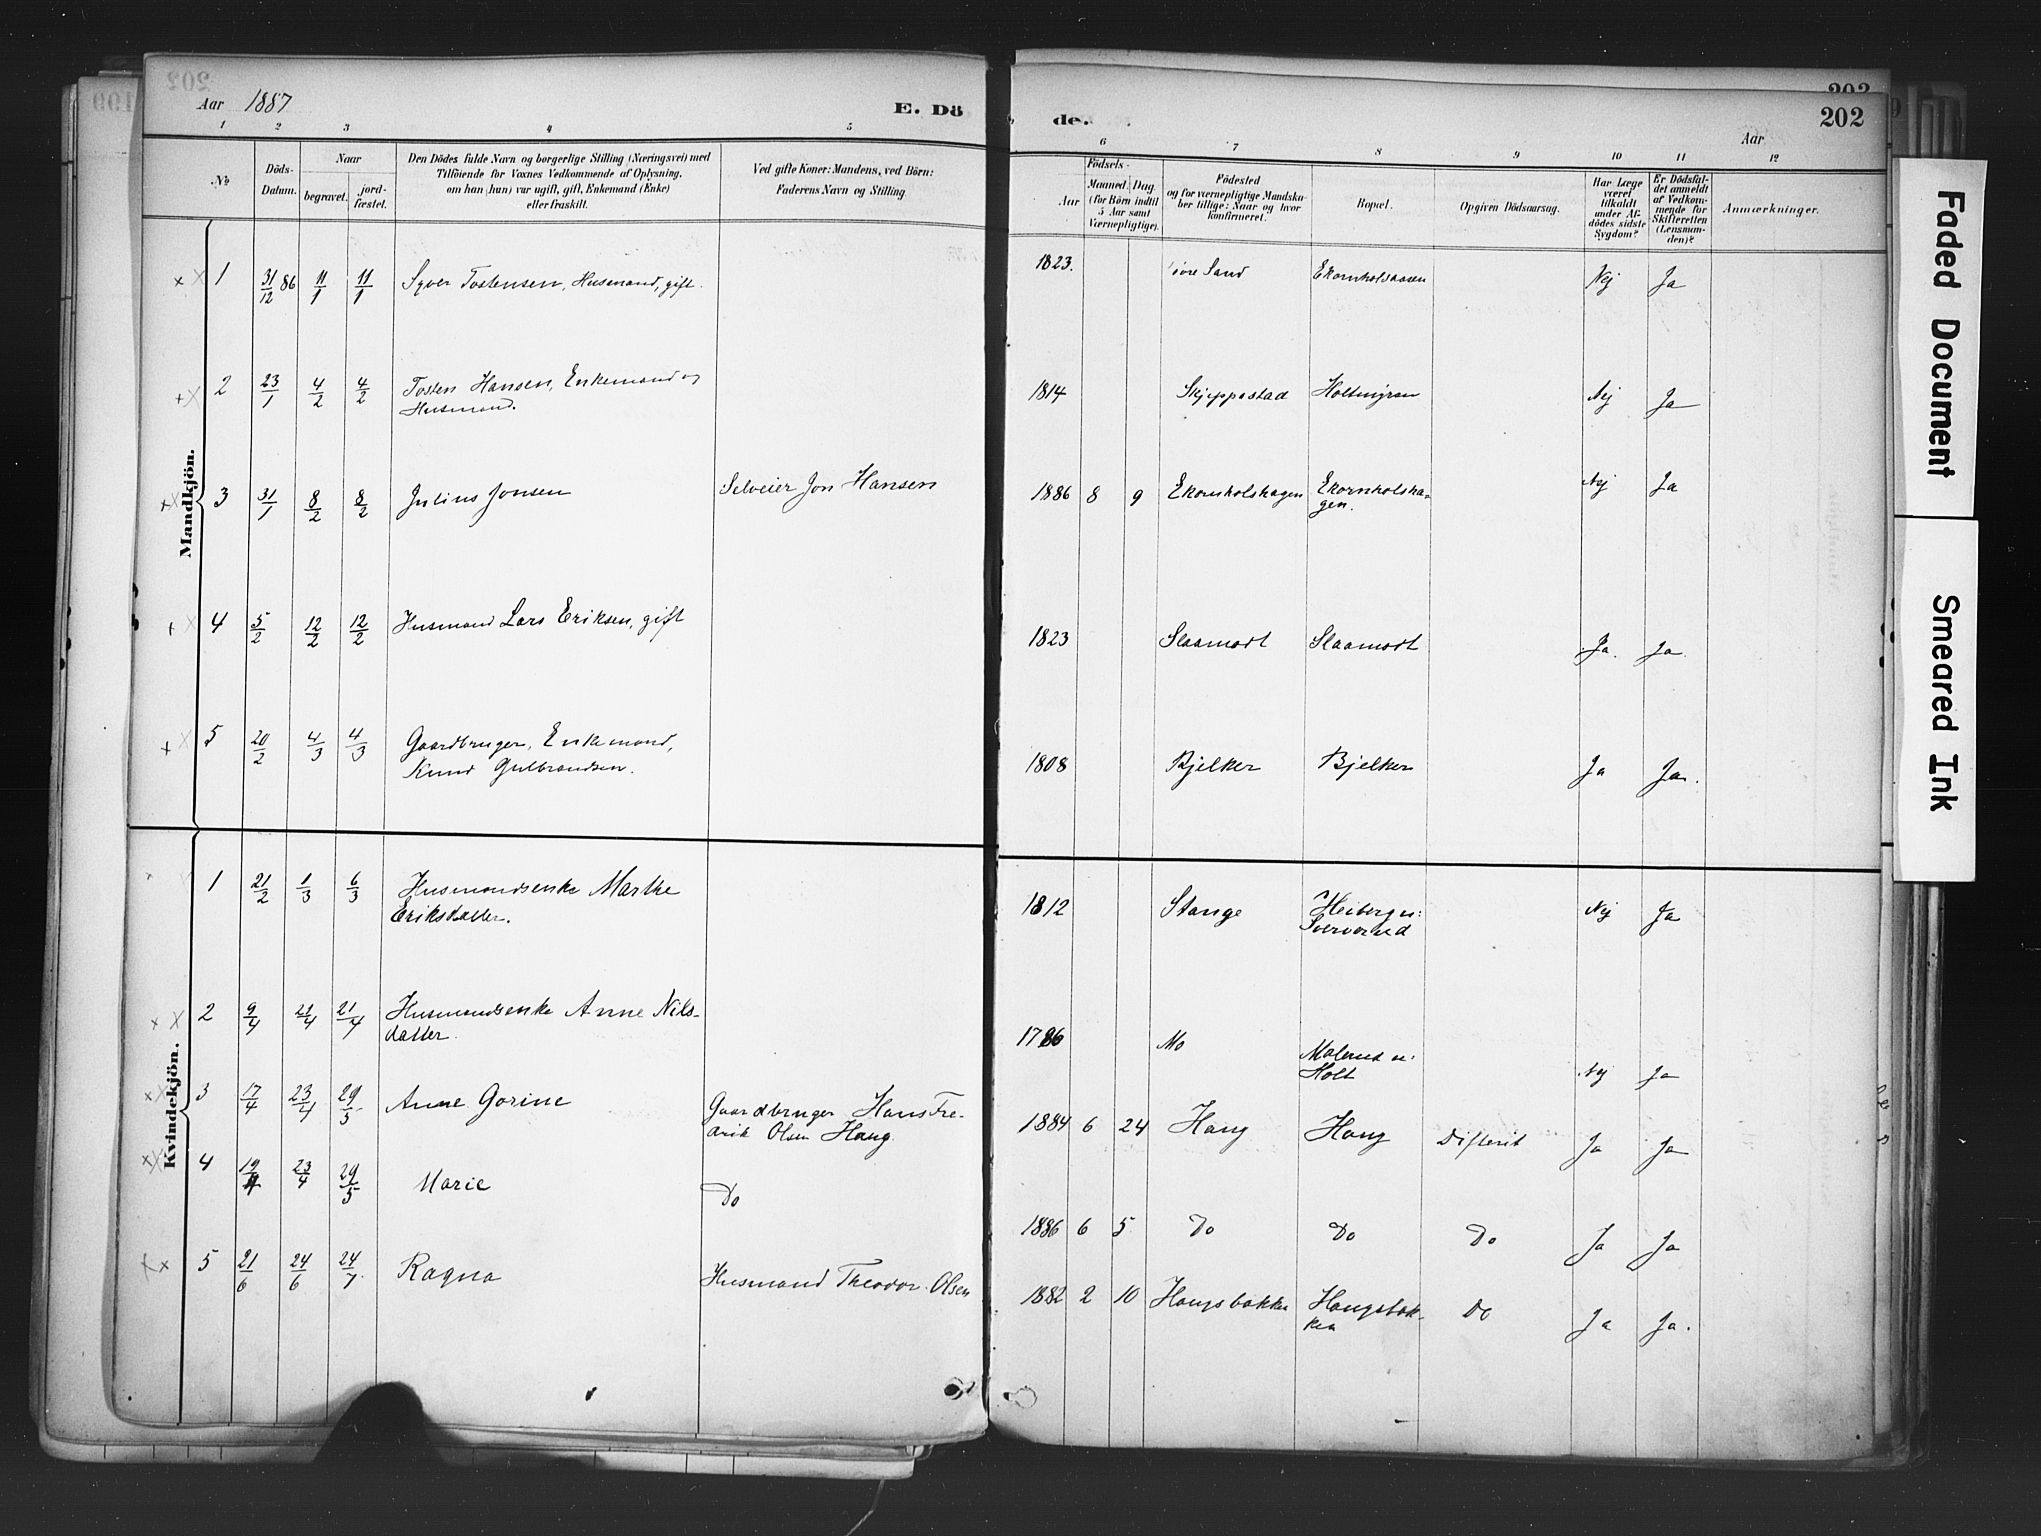 Aar 1887
E. Dö
de.
202
Aar
1 2 3 4 5 6 7 8 9 10 11 12
No
Döds-
Datum.
Naar
begravet.
jord-
fæstet.
Den Dödes fulde Navn og borgerlige Stilling (Næringsvei) med
Tilföiende for Voxnes Vedkommende af Oplysning,
om han (hun) var ugift, gift, Enkemand (Enke)
eller fraskilt.
Ved gifte Koner: Mandens, ved Börn:
Faderens Navn og Stilling.
Födsels-
Aar
Maaned. Dag.
(for Börn indtil
5 Aar samt
Værnepligtige).
Födested
og for værnepligtige Mandska-
ber tillige: Naar og hvor
konfirmeret.
Bopæl.
Opgiven Dödsaarsag.
Har Læge
været
tilkaldt
under Af-
dödes sidste
Sygdom?
Er Dödsfal-
det anmeldt
af Vedkom-
mende for
Skifteretten
(Lensman-
den)?
Anmærkninger.
Mandkjön.
1 31/12 86 11/1 11/1 Syver Tostensen, Husmand, gift. 1823. Sand Ekornholsaasen Nej Ja
2 23/1 4/2 4/2 Tosten Hansen, Enkemand og
Husmand. 1814 Skjeppestad Holtmyren Nej Ja
3 31/1 8/2 8/2 Julius Jonsen Selveier Jon Hansen 1886 8 9 Ekornholshagen Ekornholsha-
gen. Nej Ja
4 5/2 12/2 12/2 Husmand Lars Eriksen, gift 1823 Slaamodt Slaamodt Ja. Ja.
5 20/2 4/3 4/3 Gaardbruger, Enkemand,
Knud Gulbrandsen. 1808 Bjelker Bjelker Ja Ja.
Kvindekjön.
1 21/2 1/3 6/3 Husmandsenke Marthe
Eriksdatter. 1812 Stange Heiberg u:
Nej Ja
2 9/4 21/4 21/4 Husmandsenke Anne Nils-
datter. 1786 Mo Malerud u:
Holt Nej Ja
3 17/4 23/4 29/5 Anne Gorine Gaardbruger Hans Fre-
drik Olsen Haug. 1884 6 24 Haug Haug Difterit Ja Ja
4 19/4 23/4 29/5 Marie Do 1886 6 5 Do Do Do Ja Ja
5 21/6 24/6 24/7 Ragna Husmand Theodor Olsen 1882 2 10 Haugsbakken Haugsbak-
ken Do Ja Ja.
Faded Document
Smeared Ink